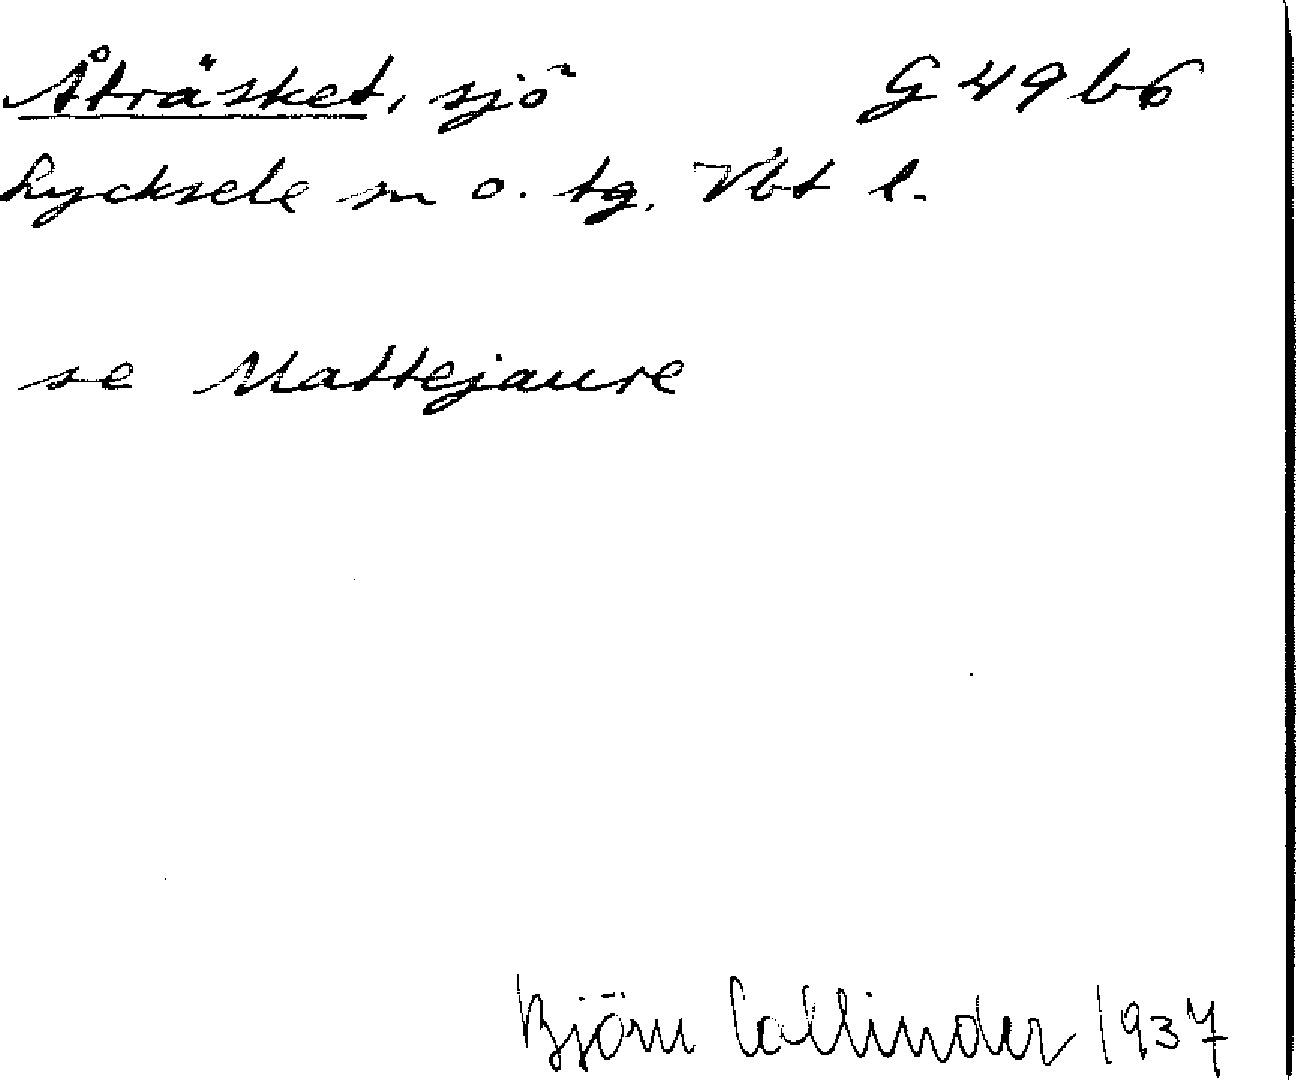 Åträsket, sjö G 49 b6
Lycksele sn o. tg. Vbt l.
se Mattejaure
Björn Collinder 1937